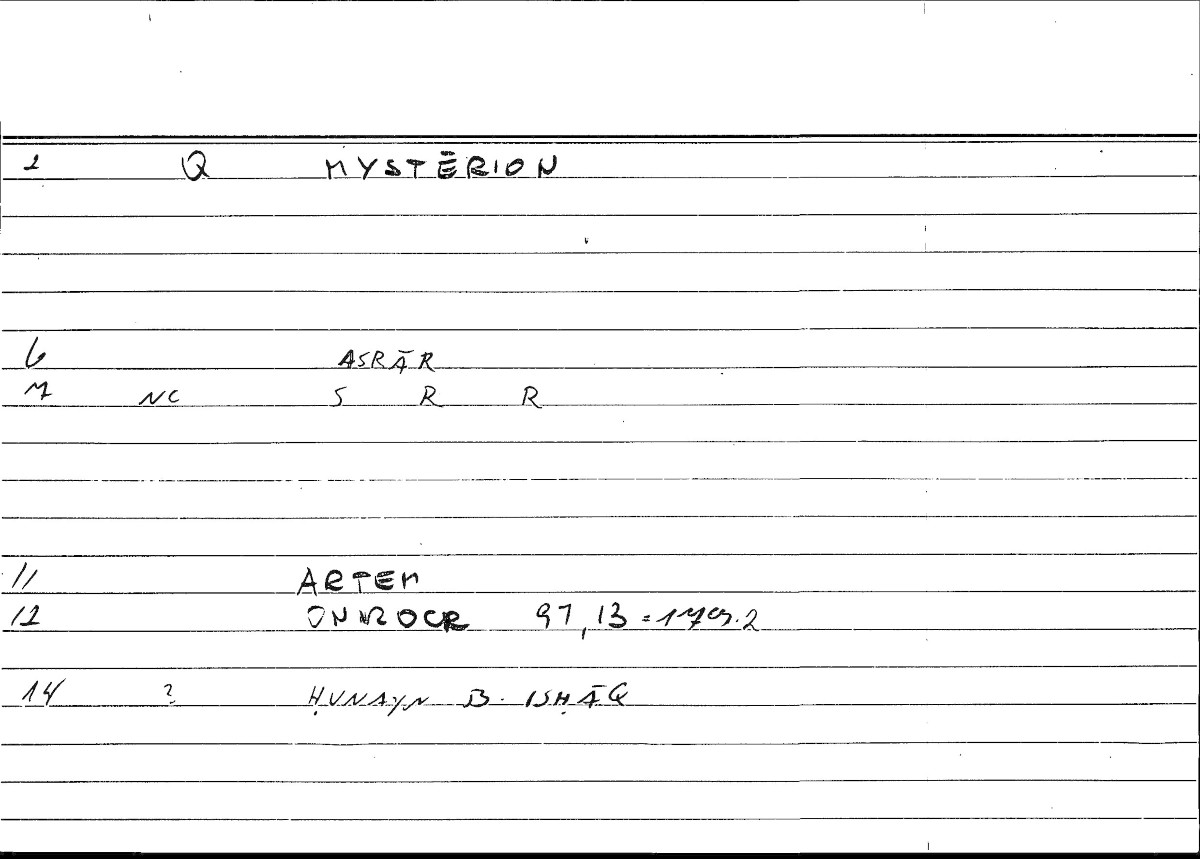 1 Q MYSTĒRION
6 ASRĀR
7 NC S R R
11 ARTEM
12 ONIROCR 97,13 = 179.2
14 ? ḤUNAYN B. ISḤĀQ